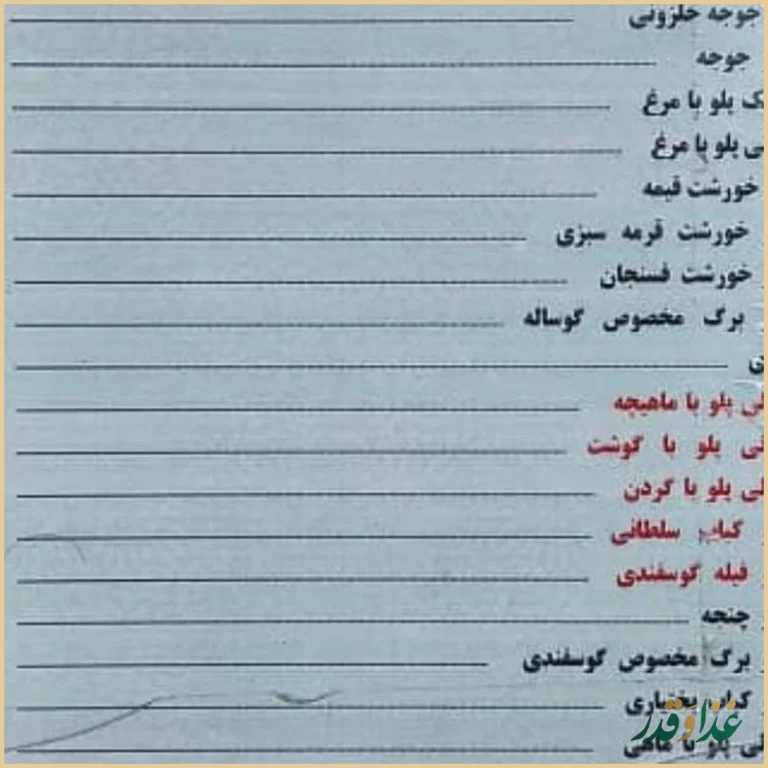 جوجه حلزونی
جوجه
پلو با مرغ
پلو با مرغ
خورشت قیمه
خورشت قرمه سبزی
خورشت فسنجان
برگ مخصوص گوساله
پلو با ماهیچه
پلو با گوشت
پلو با گردن
کباب سلطانی
فیله گوسفندی
چنجه
برگ مخصوص گوسفندی
کباب بختیاری
پلو با ماهی
غذا و قدر